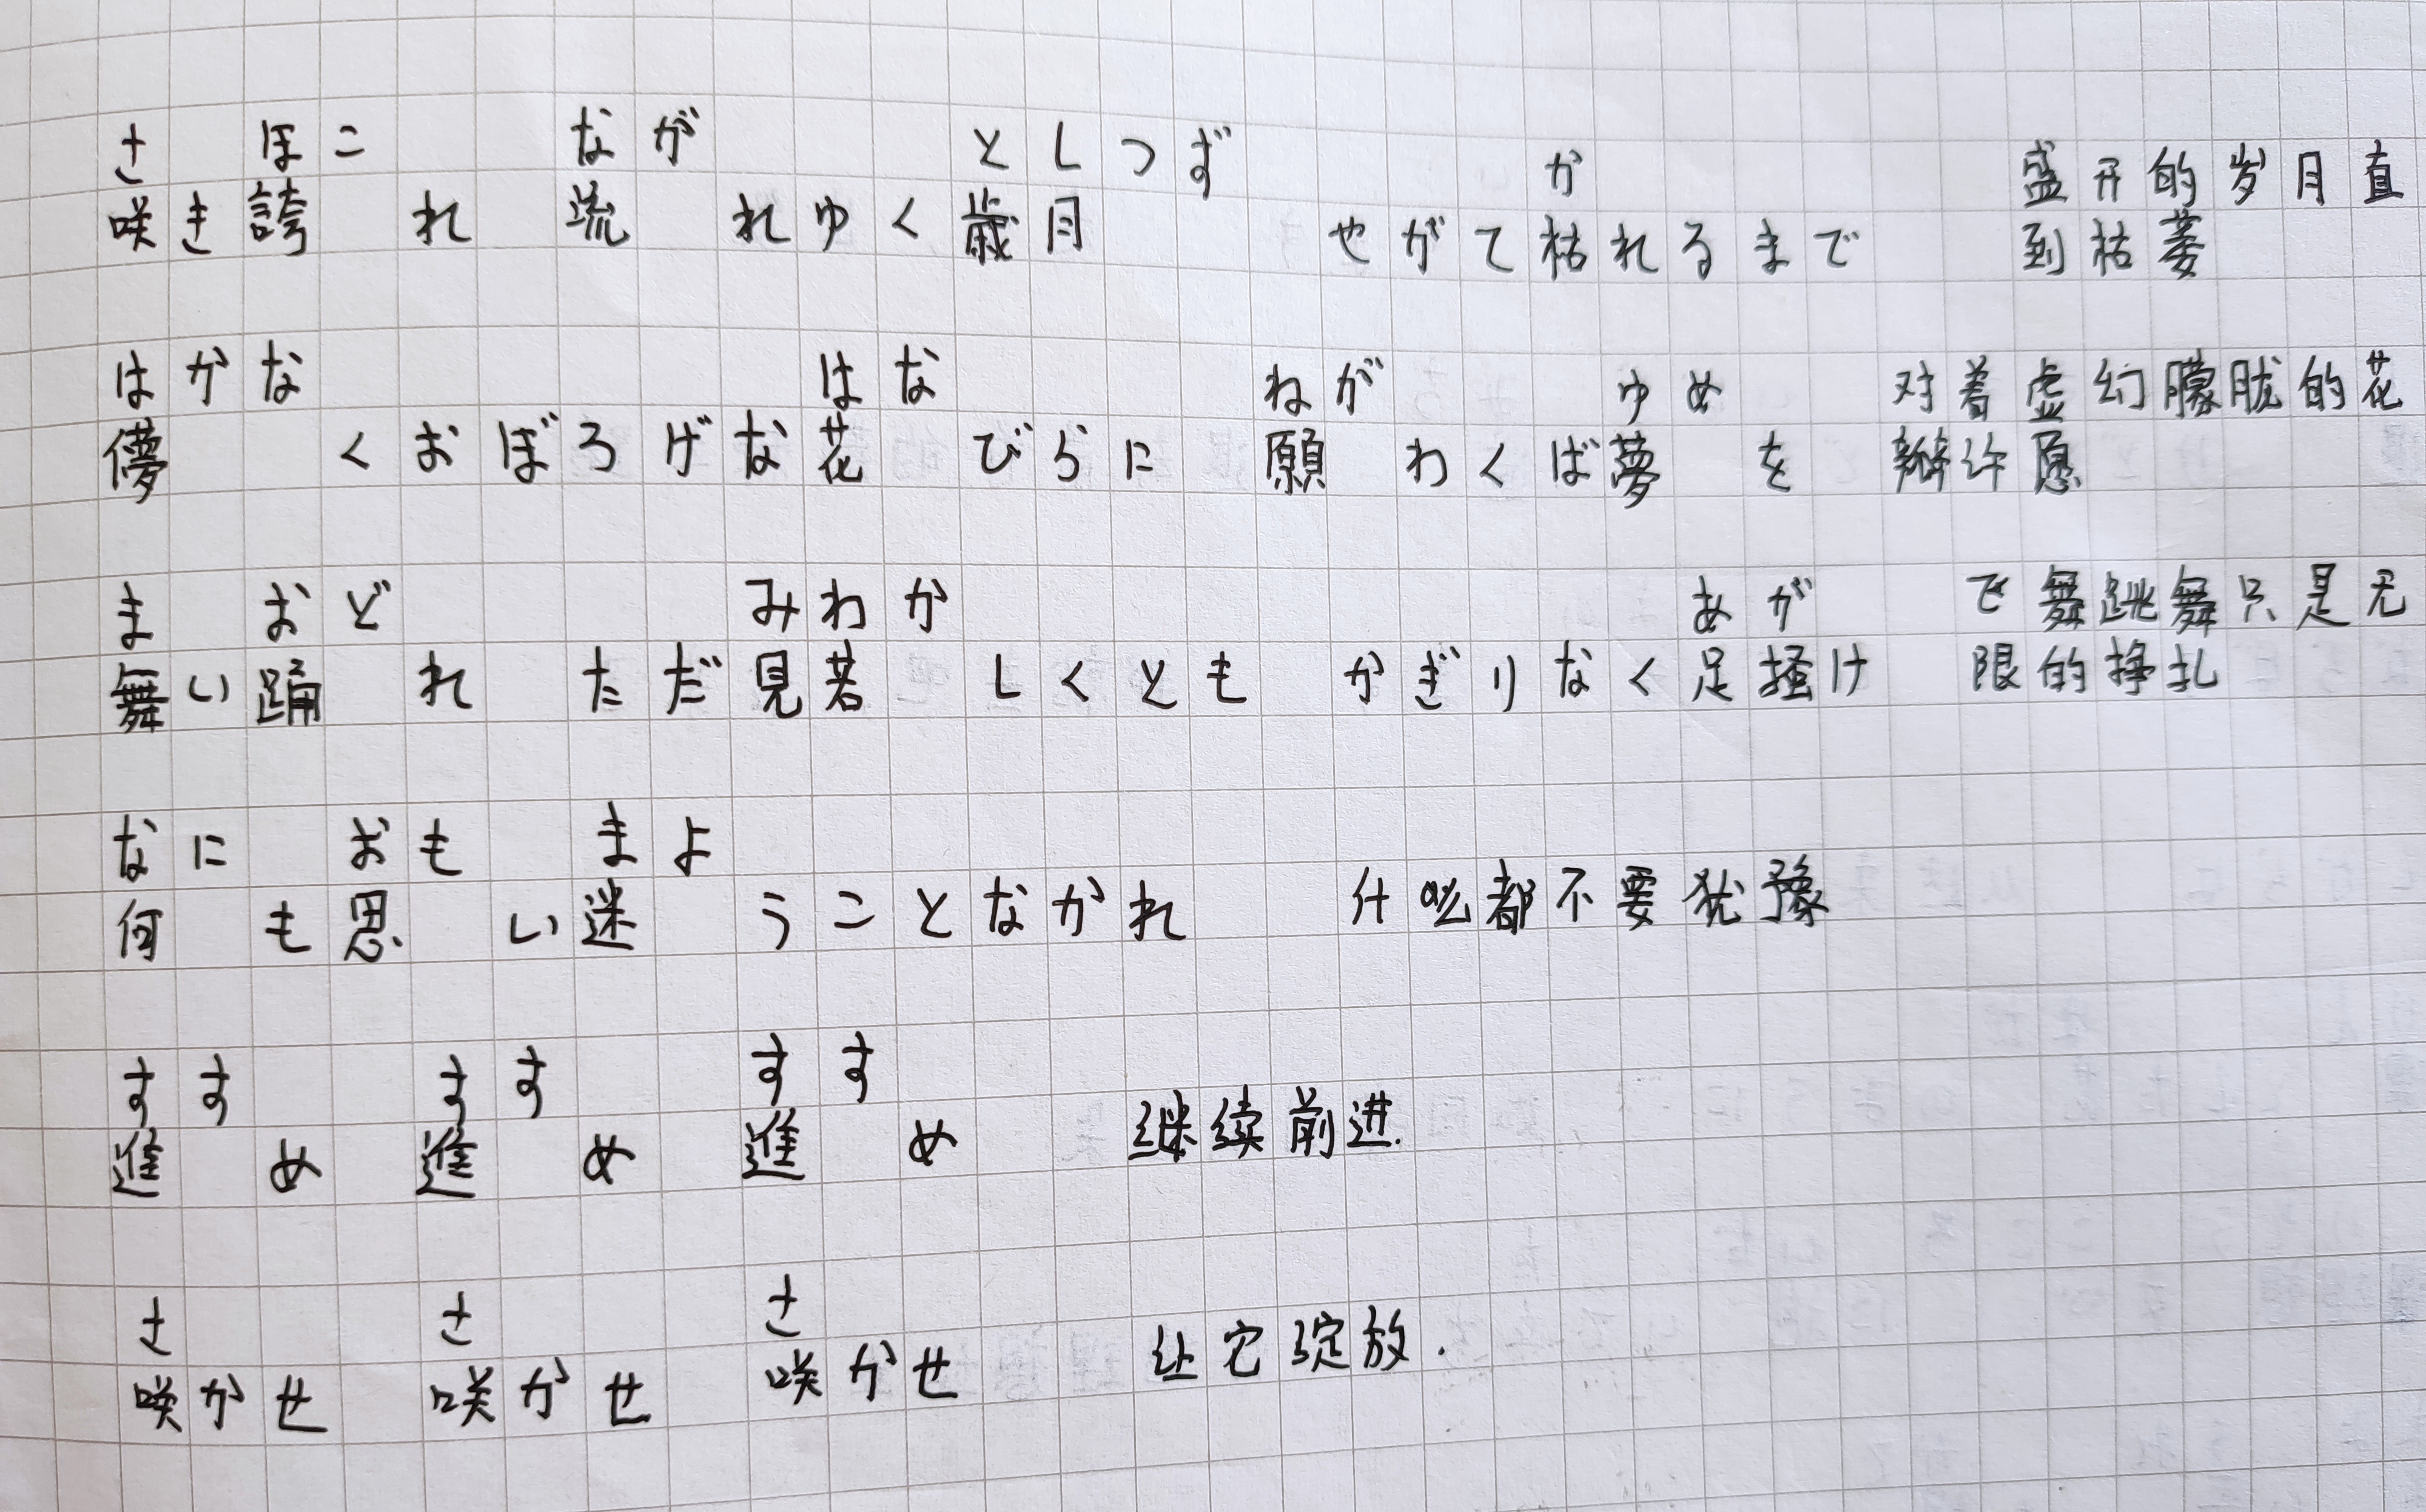 さ ほこ なが としつぎ か 盛开的岁月直
咲き誇れ 流れゆく歳月 やがて枯れるまで 到枯萎
はかな はな ねが ゆめ 对着虚幻朦胧的花
儚くおぼろげな花びらに 願わくば夢を 瓣许愿
ま おど みわか あが で舞跳舞只是无
舞い踊れ ただ見若しくとも かぎりなく足掻け 限的挣扎
なに おも まよ
何も思い迷うことなかれ 什么都不要犹豫
すす すす すす
進め 進め 進め 继续前进.
さ さ さ
咲かせ 咲かせ 咲かせ 让它绽放.